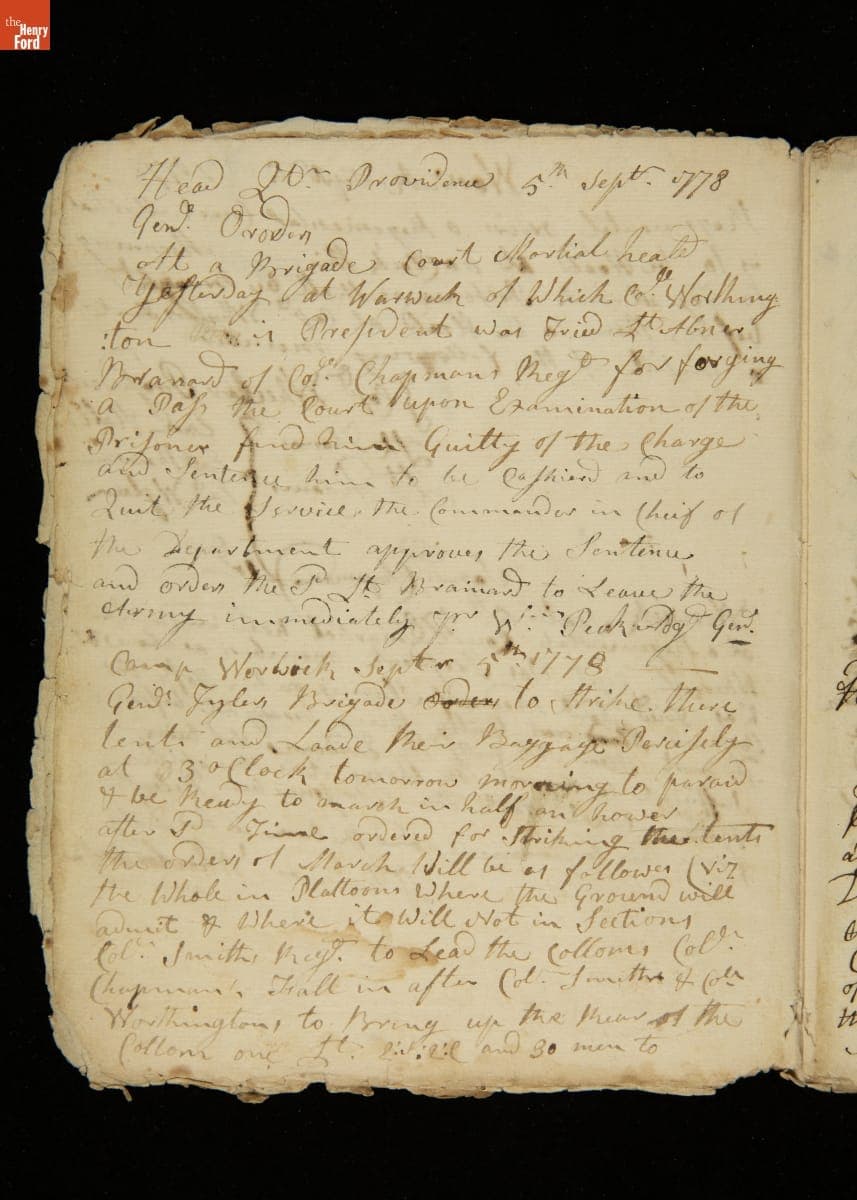 the Henry Ford
Head Qtrs Providence 5th Septr 1778
Genl Orders
At a Brigade Court Martial heald
Yesterday at Warwick of Which Coll Worthing
:ton is President was Tried Lt Abner
Brainard of Coll Chapmans Regt for forging
a Pass the Court upon Examination of the
Prisoner fund him Guilty of the Charge
and Sentence him to be Cashierd and to
Quit the Service the Commander in Cheif of
the Department approves the Sentence
and orders the Sd Lt Brainard to Leave the
Army immediately pr Wm Genl
Camp Worwick Septr 5th 1778
Genls Tylers Brigade orders to Strike there
tents and Loade their Baggage Percisely
at 3 oClock tomorrow morning to paraid
& be Ready to march in half an hower
after Sd Time ordered for Striking the tents
the orders of March Will be as followes (viz
the Whole in Plattoons Where the Ground will
admit & Where it Will Not in Sections
Coln Smiths Regt to Lead the Colloms Coln
Chapmans Fall in after Coln Smiths & Coln
Worthingtons to Bring up the Rear of the
Collom one Lt and 30 men to